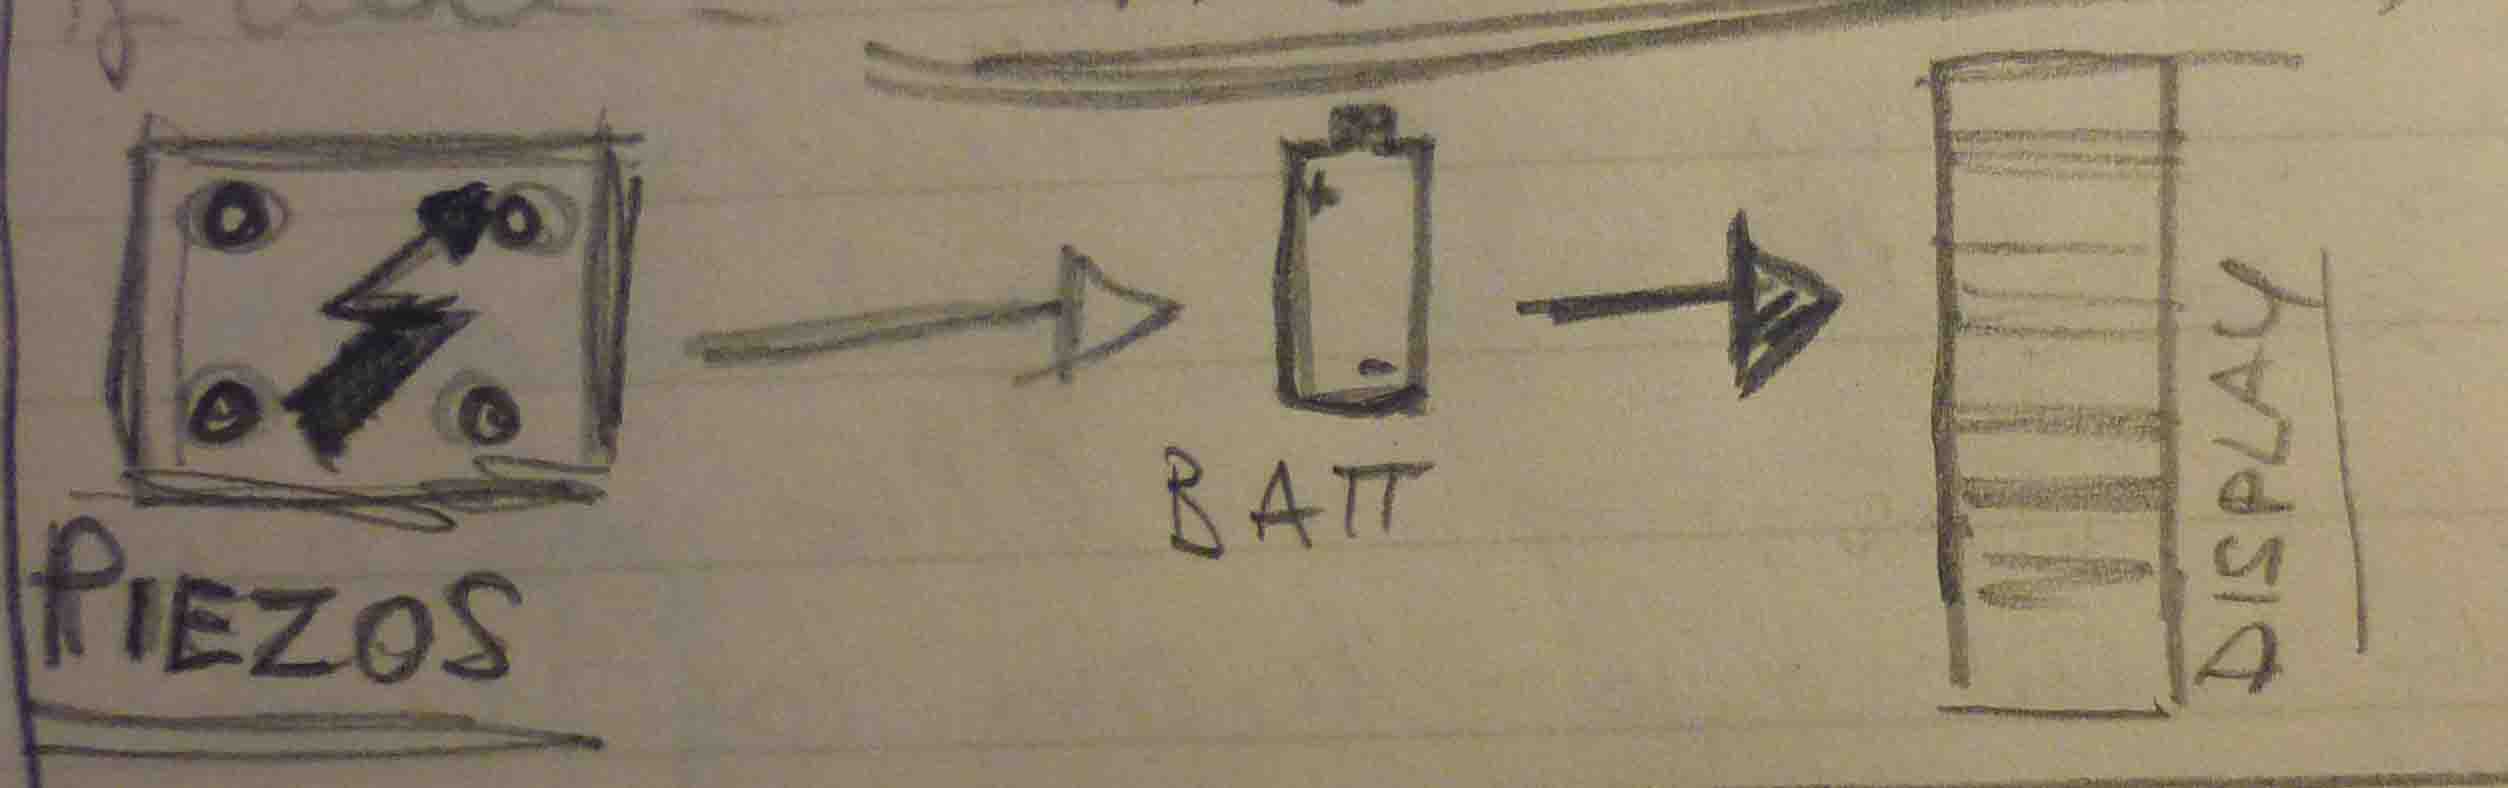 PIEZOS
+
-
BATT
DISPLAY